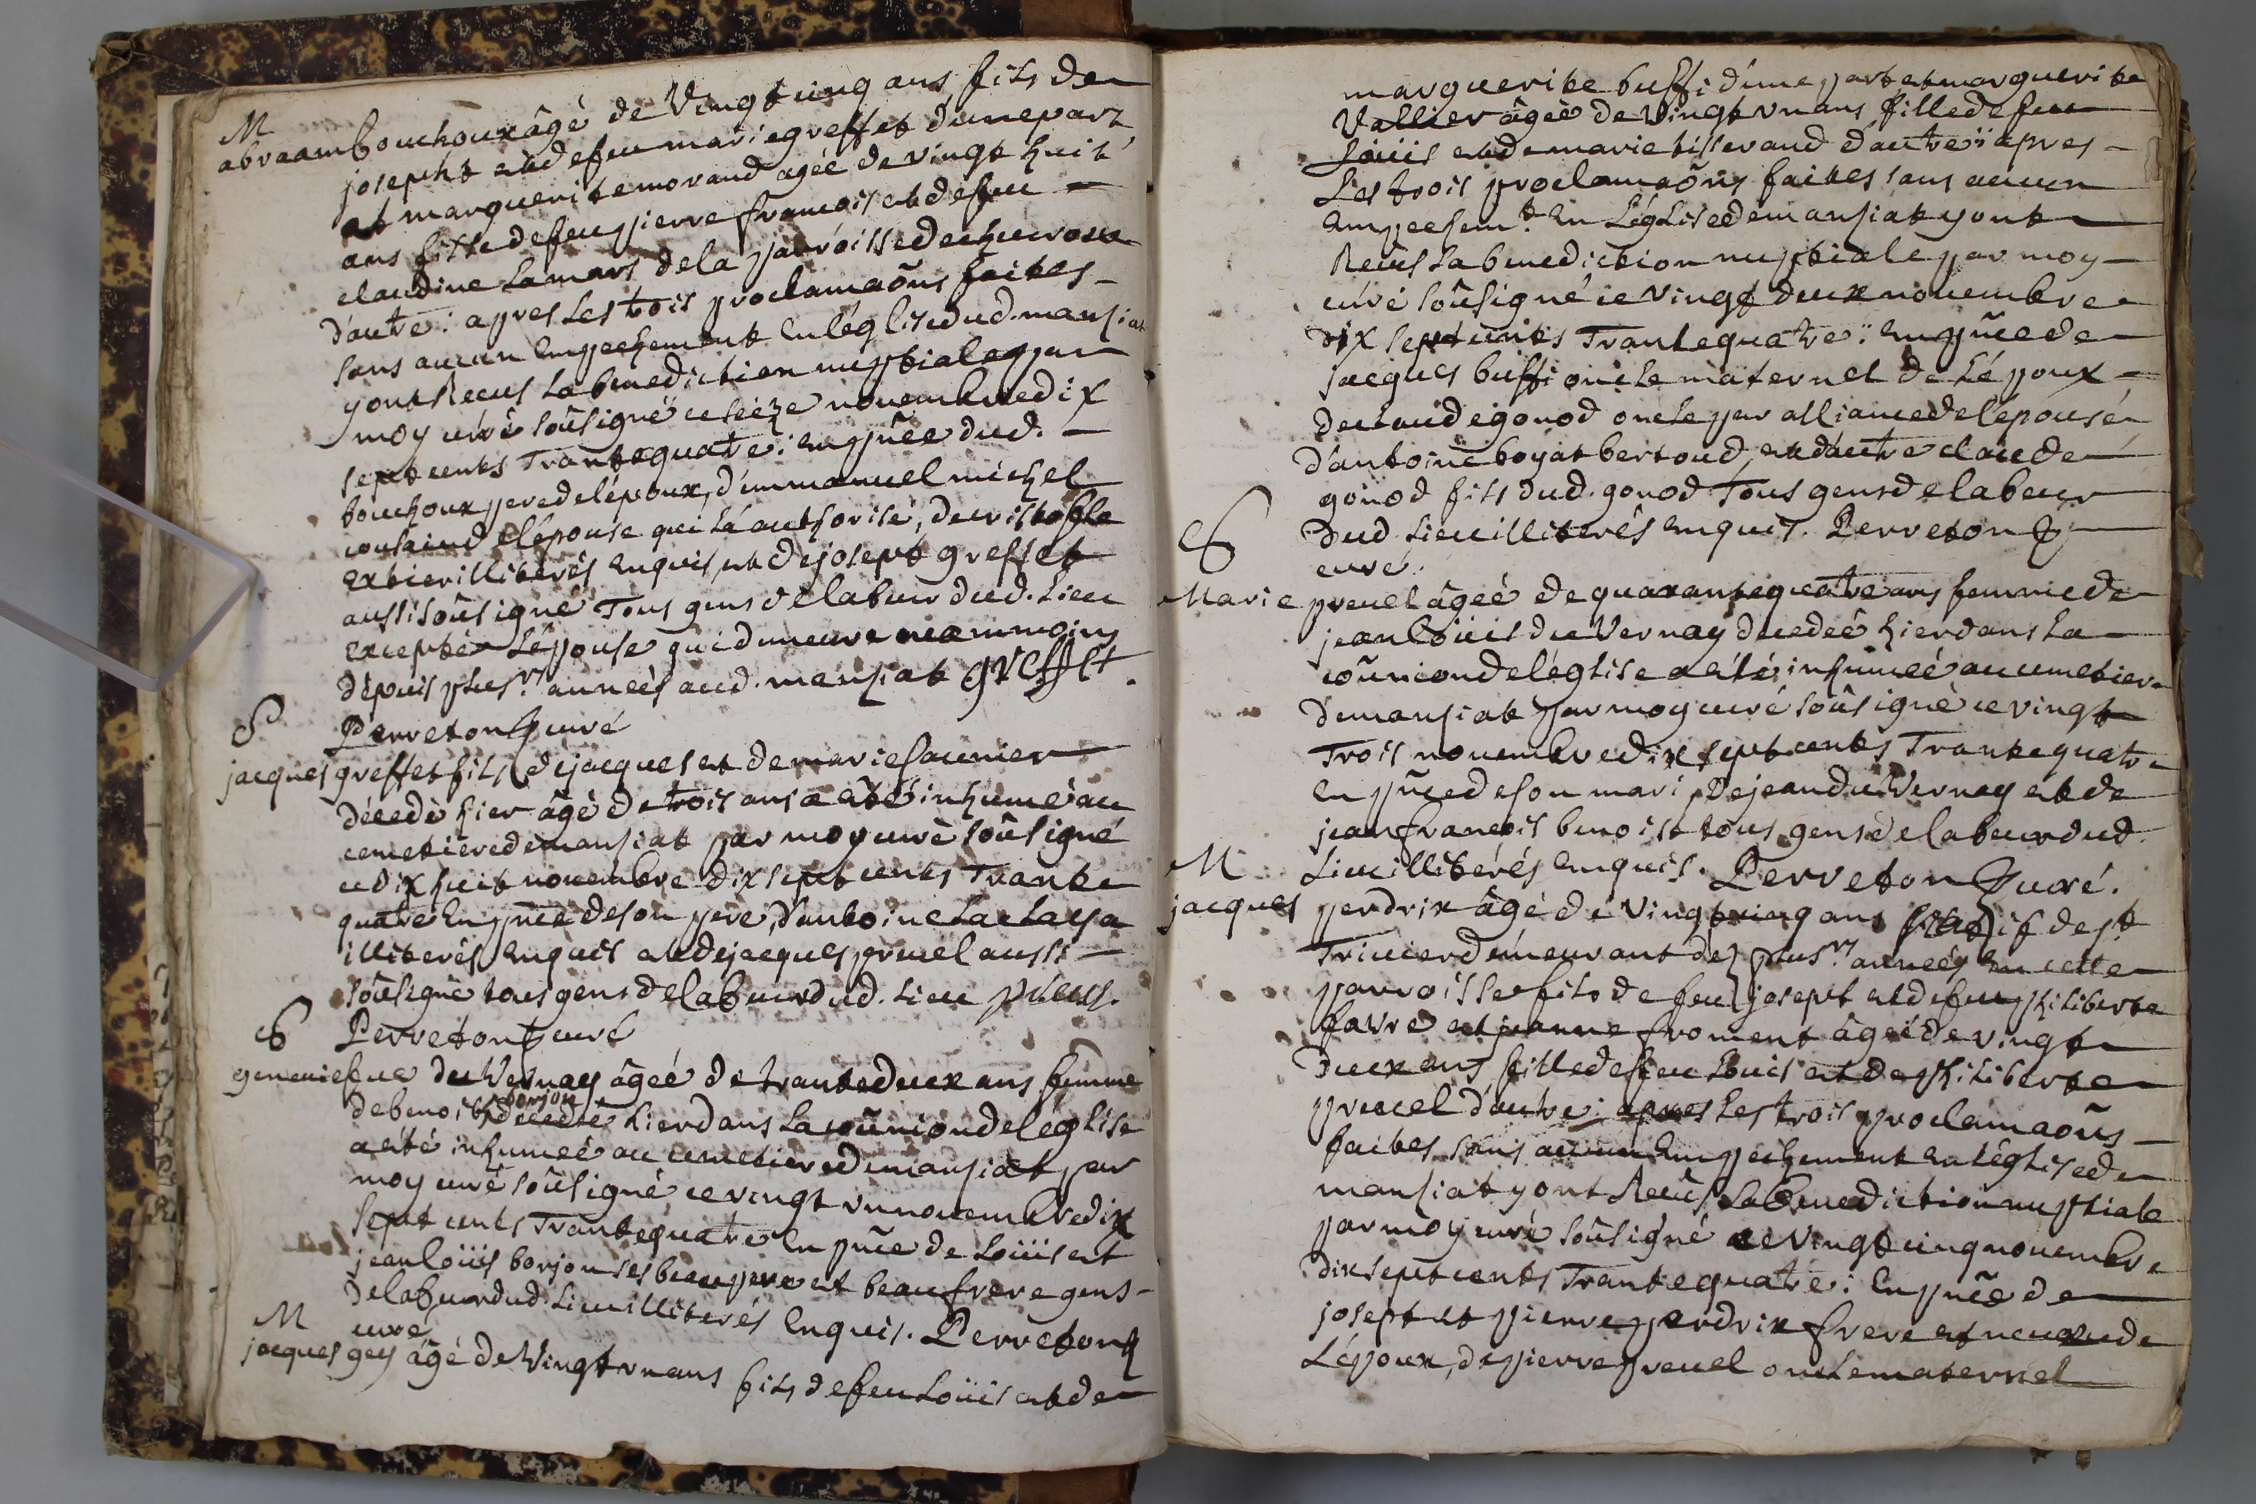 M
abraam bouchoux âgé de vingt cinq ans fils de
josepht et de feu marie greffet d'une part
et marguerite morand agée de vingt huit
ans fille de feu pierre francois et de feu
claudine Lamars de la parroisse de
d'autre : apres les trois proclamaõns faites
sans aucun empechement en léglise dud. mansiat
y ont Receus la benediction nuptiale par
moy curé soûsigné ce seize novembre dix
sept cents Trante quatre : en pñce dud.
bouchoux pere de l'époux, d'immanuel michel
cousin de l'épouse qui l'a authorisé, de
illiterés enquis, et de josept greffet
aussi soûsigné Tous gens de labeur dud. Lieu
exceptée Lépouse qui demeure neammoins
depuis plusrs années aud. mansiat greffet.
S Perreton curé
jacques greffet fils de jacques et de marie saunier
décedé hier âgé de trois ans a eté inhumé au
cemetiere de mansiat par moy curé soûsigné
ce dix huit novembre dix sept cents Trante
quatre en pñce de son pere, d'antoine Laclaysa
illiterés enquis et de jacques pruel aussi
soûsigné tous gens de labeur dud. Lieu pruel.
S Perreton curé
geneviefve du Vernay âgée de trante deux ans femme
de benoit borjon decedée hier dans la coũnion de léglise
a eté inhumée au cemetiere de mansiat par
moy curé soûsigné ce vingt vn novembre dix
sept cents Trante quatre en pñce de Loüis et
jean loüis borjon ses beau pere et beau frere gens
de labeur dud. Lieu illiterés enquis. Perreton
M curé
jacques gey âgé de vingt vn ans fils de feu Loüis et de
marguerite buffi d'une part et marguerite
Vallier âgée de vingt vn ans fille de feu
Loüis et de marie tisserand d'autre : apres
Les trois proclamaõns faites sans aucun
empechemt. en Léglise de mansiat y ont
Receus la benediction nuptiale par moy
curé soûsigné ce vingt deux novembre
dix sept cents Trante quatre : en pñce de
jacques buffi oncle maternel de Lépoux
de claude gonod oncle par alliance de l'épouse
d'antoine boyat bertoud, et d'autre claude
gonod fils dud. gonod Tous gens de labeur
dud. Lieu illiterés enquis. Perreton
S curé.
Marie pruel âgée de quarante quatre ans femme de
jean loüis du Vernay decedée hier dans la
coũnion de léglise a eté inhumée au cemetiere
de mansiat par moy curé soûsigné ce vingt
Trois novembre dix sept cents Trante quatre
en pñce de son mari, De jean du Vernay et de
jean francois benoist tous gens de labeur dud.
M Lieu illiterés enquis. Perreton curé.
jacques perdrix âgé de vingt cinq ans natif de st
Trivier demeurant dez plusrs années en cette
parroisse fils de feu josept et de feu philiberte
favre et jeanne froment âgée de vingt
deux ans fille de feu Louis et de philiberte
pruel d'autre : apres les trois proclamaõns
faites sans aucun empechement en léglise de
mansiat y ont Receus La benediction nuptiale
par moy curé soûsigné ce vingt cinq novembre
dix sept cents Trante quatre : En pñce de
josept et pierre perdrix frere et neveu de
Lépoux, de pierre pruel oncle maternel